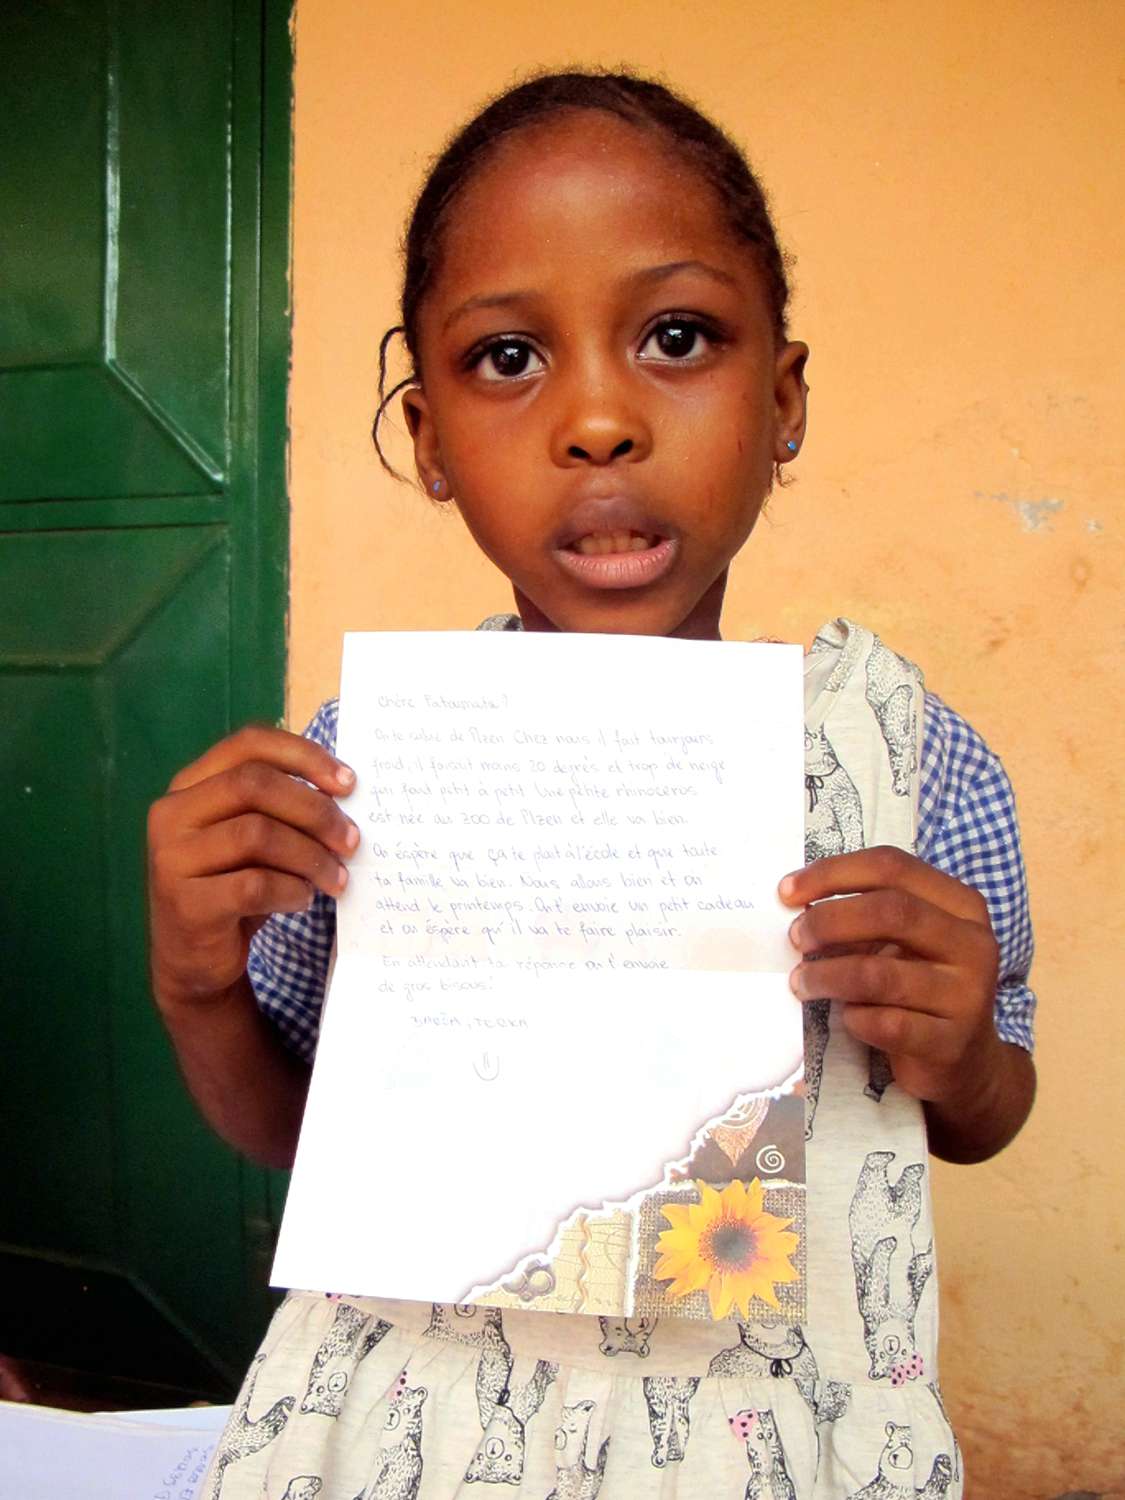 Chère Fatoumata!
On te salue de Plzen Chez nous il fait toujours
froid, il faisait moins 20 degrés et trop de neige
qui font petit à petit Une petite rhinoceros
est née au ZOO de Plzen et elle va bien.
On éspère que ça te plait à l'école et que toute
ta famille va bien. Nous allons bien et on
attend le printemps. On t'envoie un petit cadeau
et on éspère qu'il va te faire plaisir.
En attendant ta réponse on t'envoie
de gros bisous!